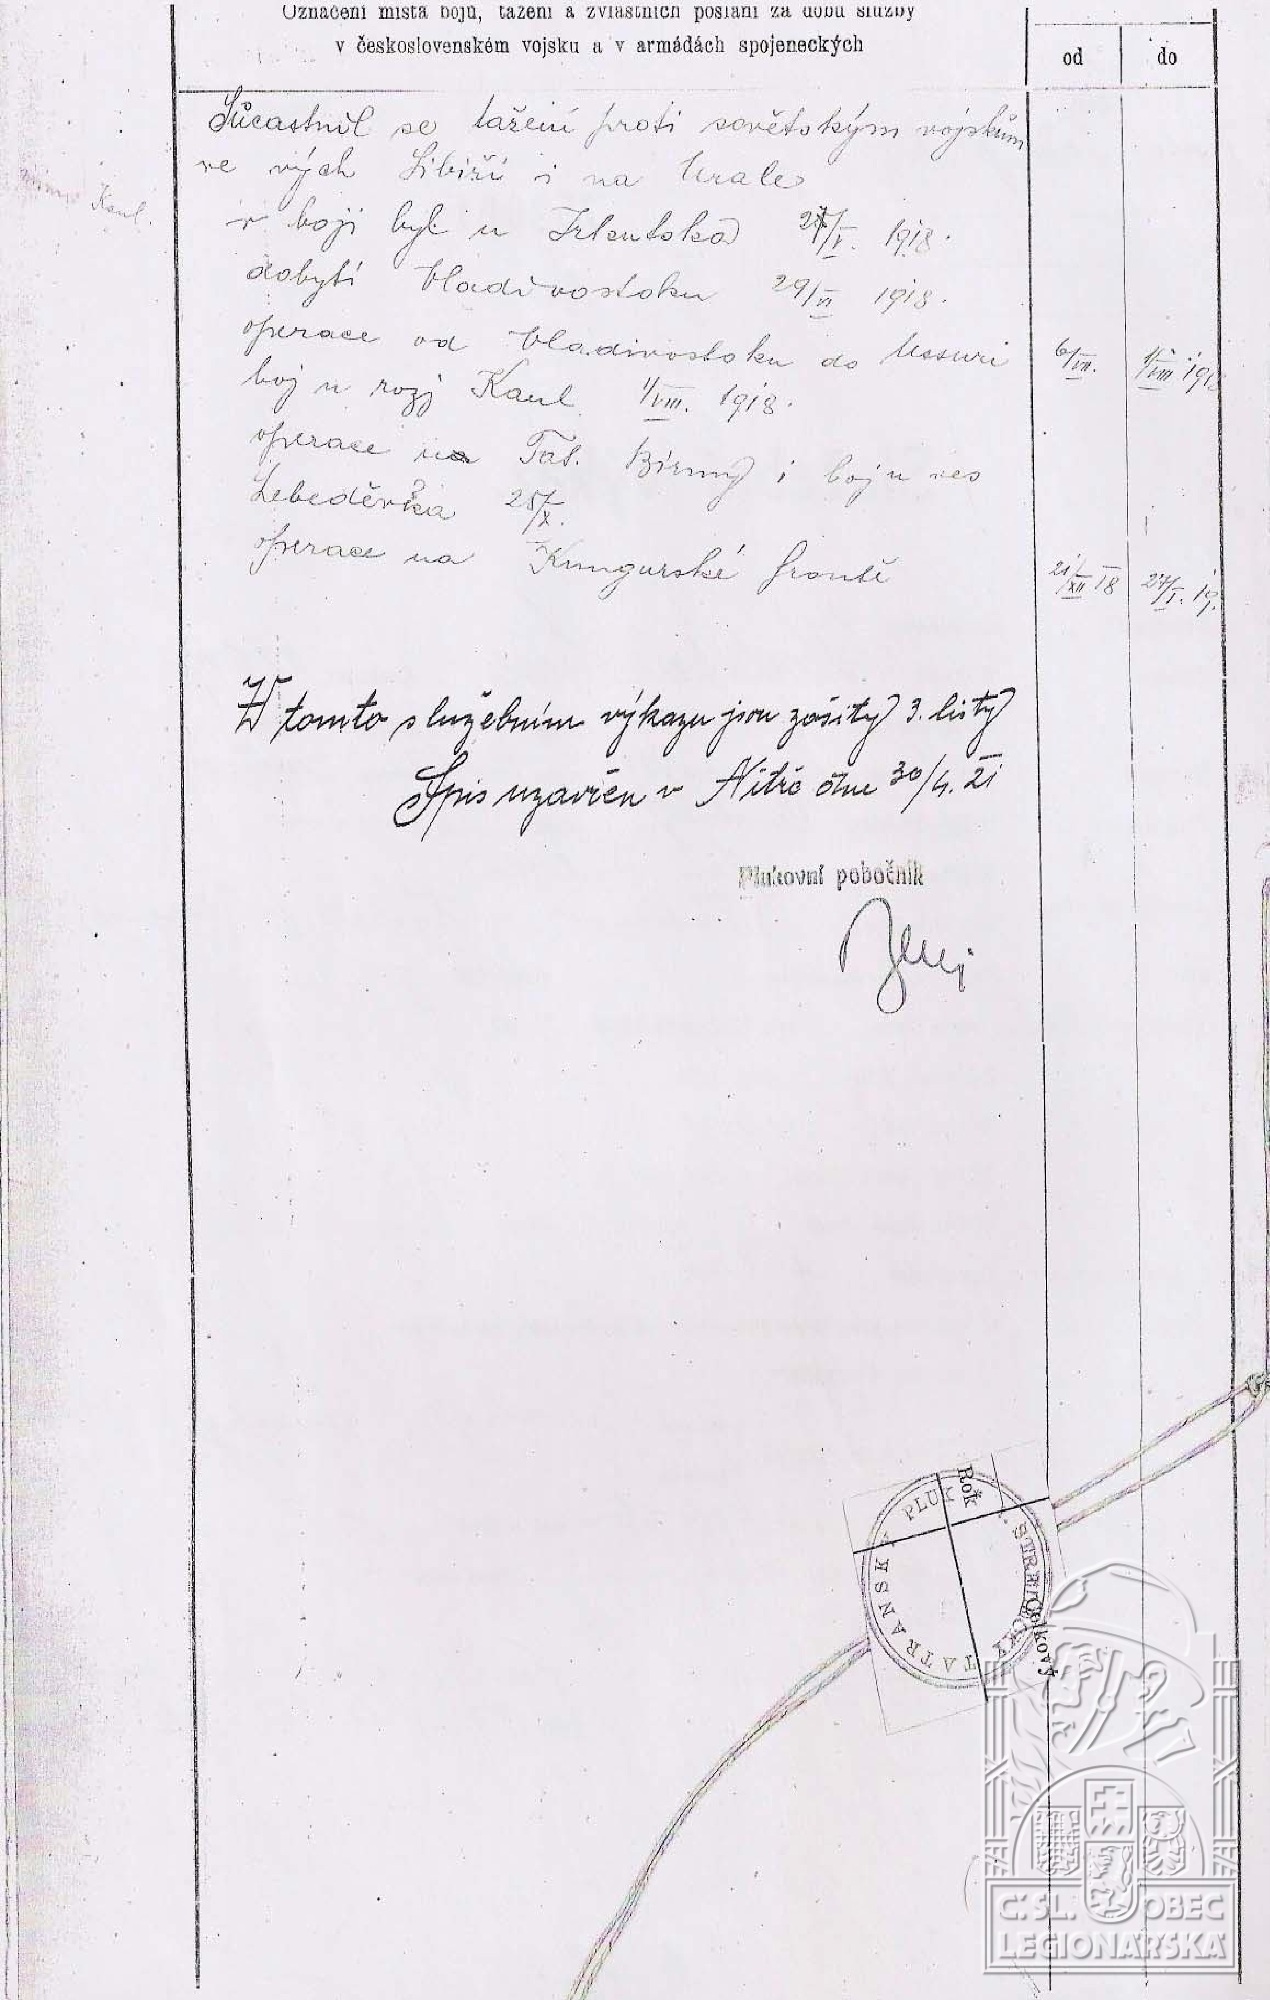 Označení místa bojů, tažení a zvláštních poslání za dobu služby
v československém vojsku a v armádách spojeneckých
od
do
Súčastnil se tažení proti sovětským vojskům
ve vých Sibiři i na Urale
Kaul.
v boji byl u Irkutska 27/V. 1918.
dobytí Vladivostoku 29/VI 1918.
operace od Vladivostoku do Ussuri 6/VII. 1/VIII 1918
boj u rozj Kaul 1/VIII. 1918.
operace na Tat. i boj u ves
Lebeděvka 25/X.
operace na Kungurské frontě 21/XII 18 27/I. 19.
V tomto služebním výkazu jsou zašity 3. listy
Spis uzavřen v Nitře dne 30/4. 21
Plukovní pobočník
TATRANSKÝ PLUK STŘELECKÝ
Rok
ČSL. OBEC
LEGIONÁŘSKÁ